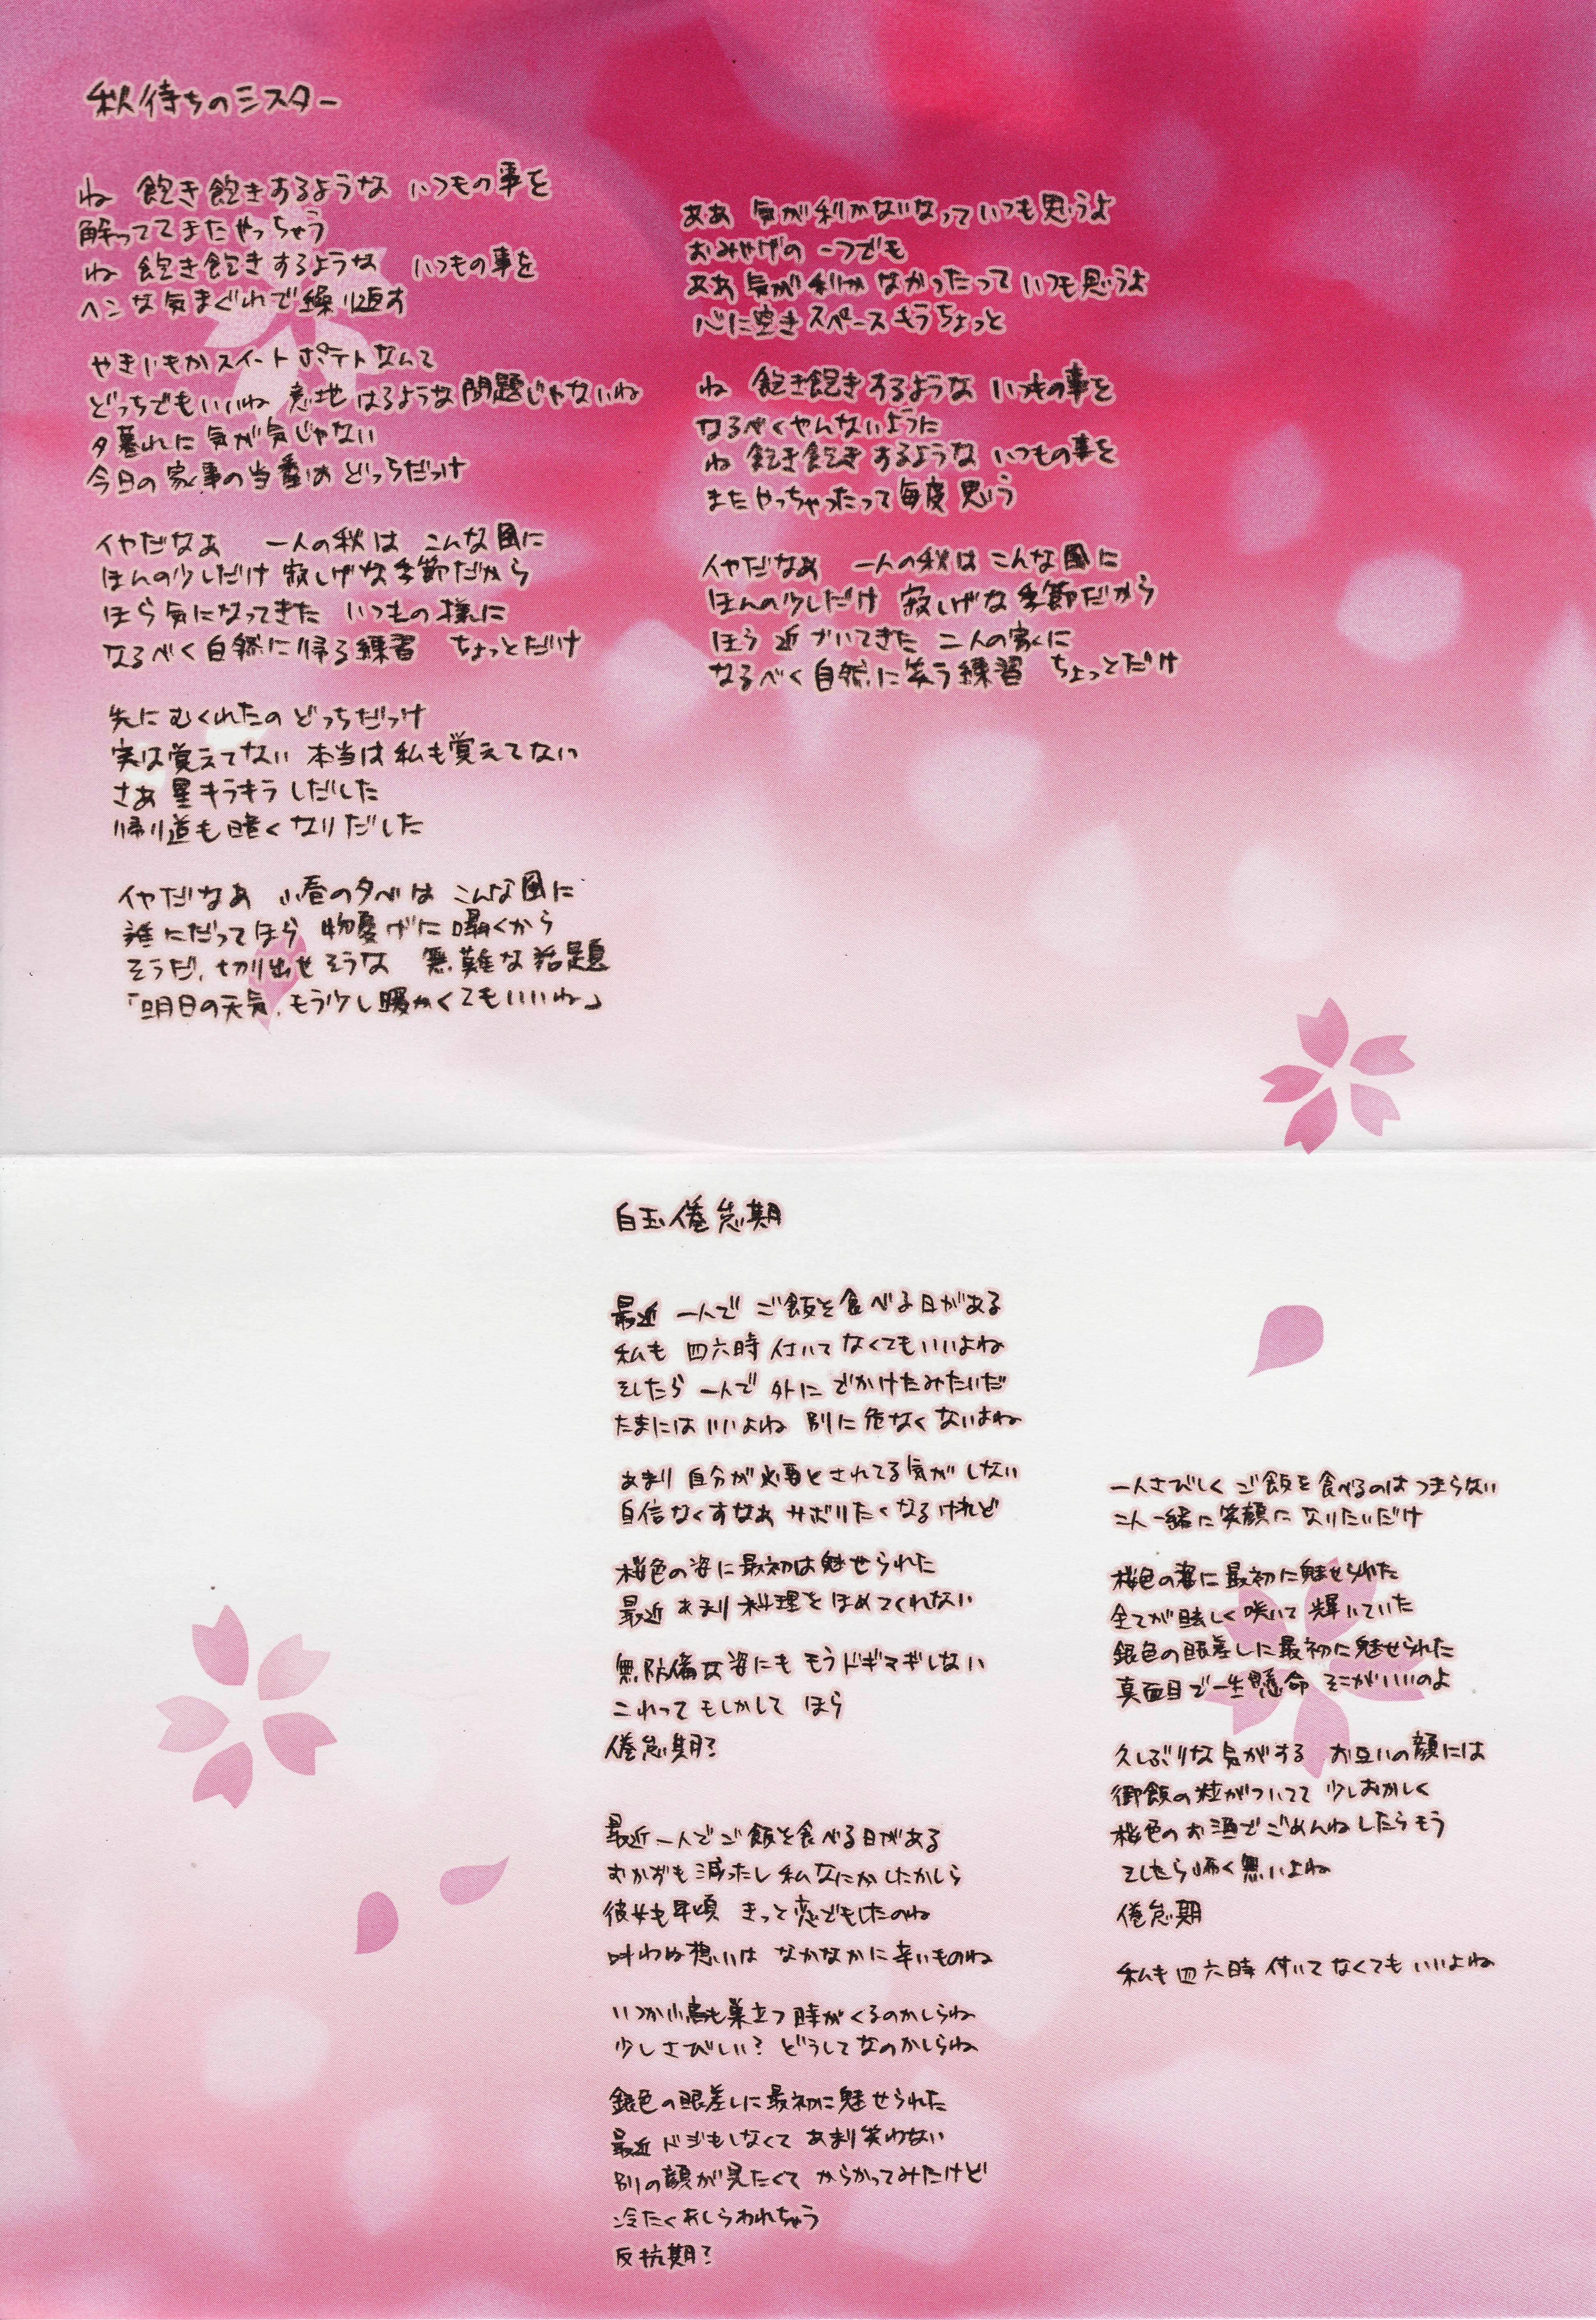 秋待ちのシスター
ね 飽き飽きするような いつもの事を
解っててまたやっちゃう
ね 飽き飽きするような いつもの事を
ヘンな気まぐれで繰り返す
やきいもかスイートポテトなんて
どっちでもいいね 意地はるような問題じゃないね
夕暮れに気が気じゃない
今日の家事の当番は どっちだっけ
イヤだなぁ 一人の秋は こんな風に
ほんの少しだけ 寂しげな季節だから
ほら気になってきた いつもの様に
なるべく自然に帰る練習 ちょっとだけ
先にむくれたの どっちだっけ
実は覚えてない 本当は私も覚えてない
さあ 星キラキラしだした
帰り道も暗くなりだした
イヤだなあ 小春の夕べは こんな風に
誰にだってほら 物憂げに囁くから
そうだ、切り出せそうな 無難な話題
「明日の天気、もう少し暖かくてもいいね」
ああ 気が利かないなって いつも思うよ
おみやげの 一つでも
ああ 気が利かなかったって いつも思うよ
心に空きスペースもうちょっと
ね 飽き飽きするような いつもの事を
なるべくやんないように
ね 飽き飽きするような いつもの事を
またやっちゃったって毎度思う
イヤだなあ 一人の秋は こんな風に
ほんの少しだけ 寂しげな季節だから
ほら 近づいてきた 二人の家に
なるべく自然に笑う練習 ちょっとだけ
白玉倦怠期
最近 一人で ご飯を食べる日がある
私も 四六時 付いてなくてもいいよね
そしたら 一人で 外に でかけたみたいだ
たまにはいいよね 別に危なくないよね
あまり 自分が必要とされてる気がしない
自信なくすなあ サボりたくなるけれど
桜色の姿に最初は魅せられた
最近 あまり 料理をほめてくれない
無防備な姿にも もうドギマギしない
これって もしかして ほら
倦怠期?
最近一人でご飯を食べる日がある
おかずも減ったし 私なにかしたかしら
彼女も年頃 きっと恋でもしたのね
叶わぬ想いは なかなかに辛いものね
いつか小鳥も巣立つ時がくるのかしらね
少しさびしい? どうしてなのかしらね
銀色の眼差しに最初に魅せられた
最近 ドジもしなくて あまり笑わない
別の顔が見たくて からかってみたけど
冷たくあしらわれちゃう
反抗期?
一人さびしく ご飯を食べるのはつまらない
二人一緒に笑顔に なりたいだけ
桜色の姿に最初に魅せられた
全てが眩しく咲いて 輝いていた
銀色の眼差しに最初に魅せられた
真面目で一生懸命 そこがいいのよ
久しぶりな気がする お互いの顔には
御飯の粒がついてて 少しおかしく
桜色のお酒でごめんねしたらもう
そしたら怖く無いよね
倦怠期
私も四六時 付いてなくても いいよね